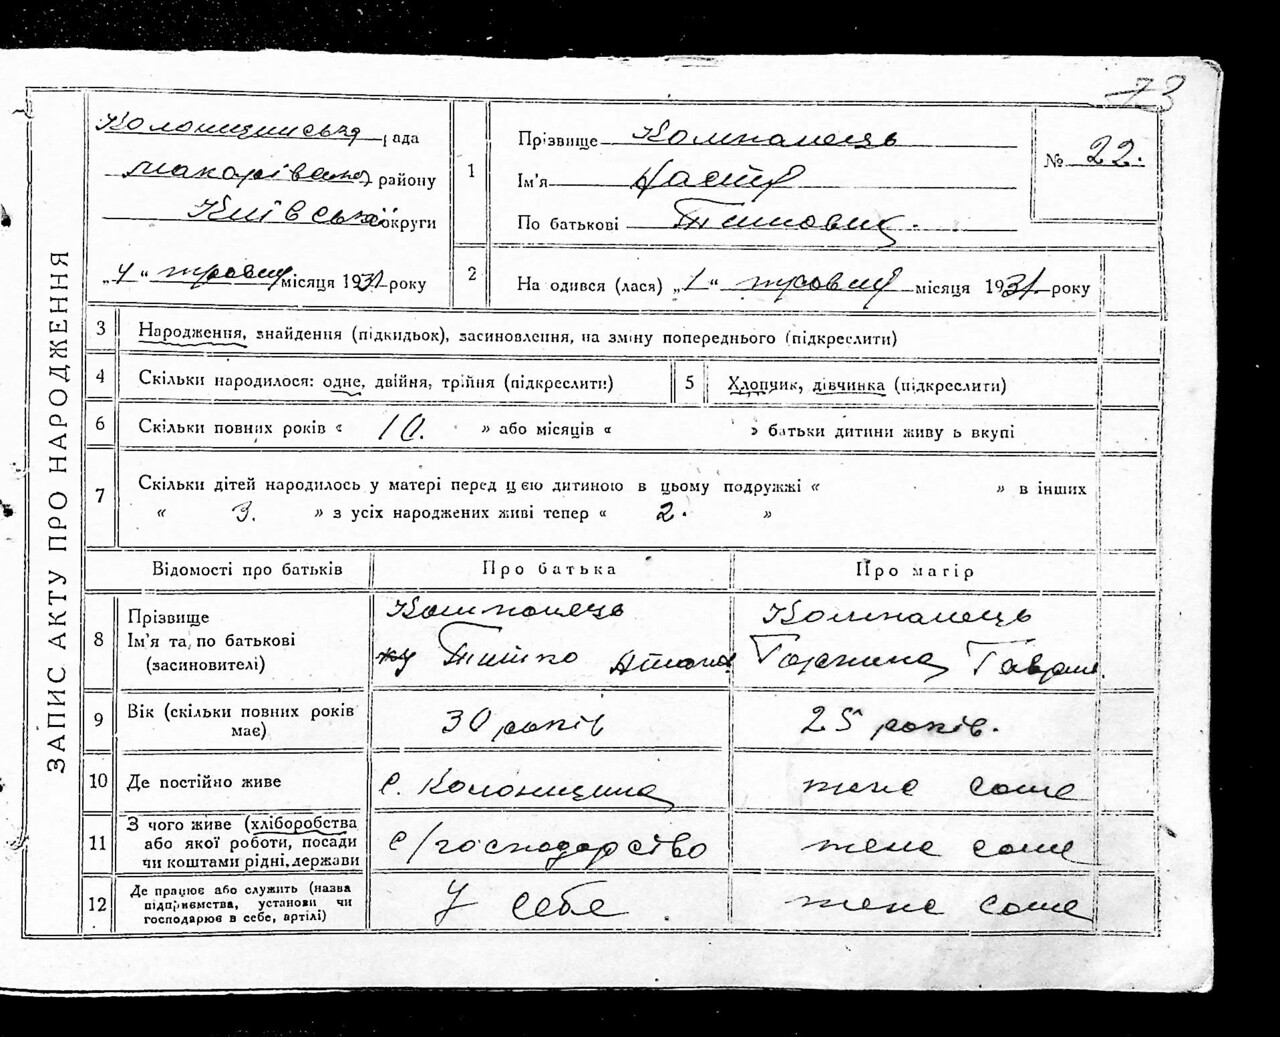 73
ЗАПИС АКТУ ПРО НАРОДЖЕННЯ
Колонщинська рада
Макарівського району
Київської округи
„4“ травня місяця 1931 року
1
Прізвище Компанець
Ім'я Настя
По батькові Тишовна.
№ 22.
2
На одився (лася) „1“ травня місяця 1931 року
3 Народження, знайдення (підкидьок), засиновлення, на зміну попереднього (підкреслити)
4 Скільки народилося: одне, двійня, трійня (підкреслити)
5 Хлопчик, дівчинка (підкреслити)
6 Скільки повних років « 10. » або місяців « » батьки дитини живу ь вкупі
7 Скільки дітей народилось у матері перед цею дитиною в цьому подружжі « » в інших
« 3. » з усіх народжених живі тепер « 2. »
Відомості про батьків Про батька Про матір
8 Прізвище
Ім'я та по батькові
(засиновителі)
Компанець
Тишко
Компанець
Горпина Гаврил.
9 Вік (скільки повних років має) 30 років 25 років.
10 Де постійно живе с. Колонщина теж саме
11 З чого живе (хліборобства
або якої роботи, посади
чи коштами рідні, держави
с/господарство теж саме
12 Де працює або служить (назва
підприємства, установи чи
господарює в себе, артілі)
У себе теж саме